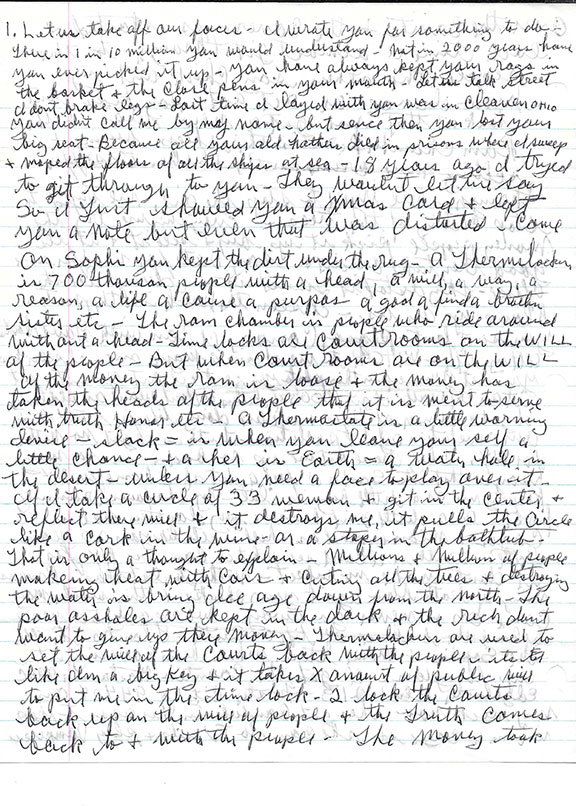 1. Let us take off our faces - I wrote you for something to do -
There in 1 in 10 million you would understand - not in 2000 years have
you ever picked it up - you have always kept your rags in
the basket & the close pens in your mouth - Let us talk street
I dont brake legs - Last time I layed with you was in
you didnt call me by my name - but sence then you lost your
big seat - Because all your old hathers died in prisons where I sweep
& moped the floors of all the ships at sea - 18 years ago I tryed
to git through to you - They wouldnt let me say
So I Just showed you a Xmas Card & left
you a note but even that was distorted - Come
on, Sophi you kept the dirt under the rug - A Thermolocker
is 700 thouison people with a head, a will, a way, a
reason, a life a cause a purpos a god a find a brother
sister etc - The ram chamber is people who ride around
without a head - Time locks are Court rooms on the WILL
of the people - But when Court rooms are on the WILL
of the money the ram is loose & the money has
taken the heads of the people that it is ment to serve
with truth Honor etc - A Thermostate is a little warning
devise - slack = is when you leave your self a
little chance - & a her is Earth = a water hole in
the desert - unless you need a face to play over it -
If I take a circle of 33 woman & git in the center &
reflect there will & it destroys me, it pulls the Circle
like a cork in the wine - or a stoper in the bathtub -
That is only a thought to explain - Millions & Millions of people
makeing heat with Cars & cuting all the trees & destroying
the water is bring Ice age down from the north - The
poor assholes are kept in the dark & the rich dont
want to give up there money - Thermolockers are used to
set the will of the Courts back with the people - its
like Im a big key & it takes X amount of public will
to put me in the time lock - I lock the Courts
back up on the will of people & the Truth comes
back to & with the people - The money took